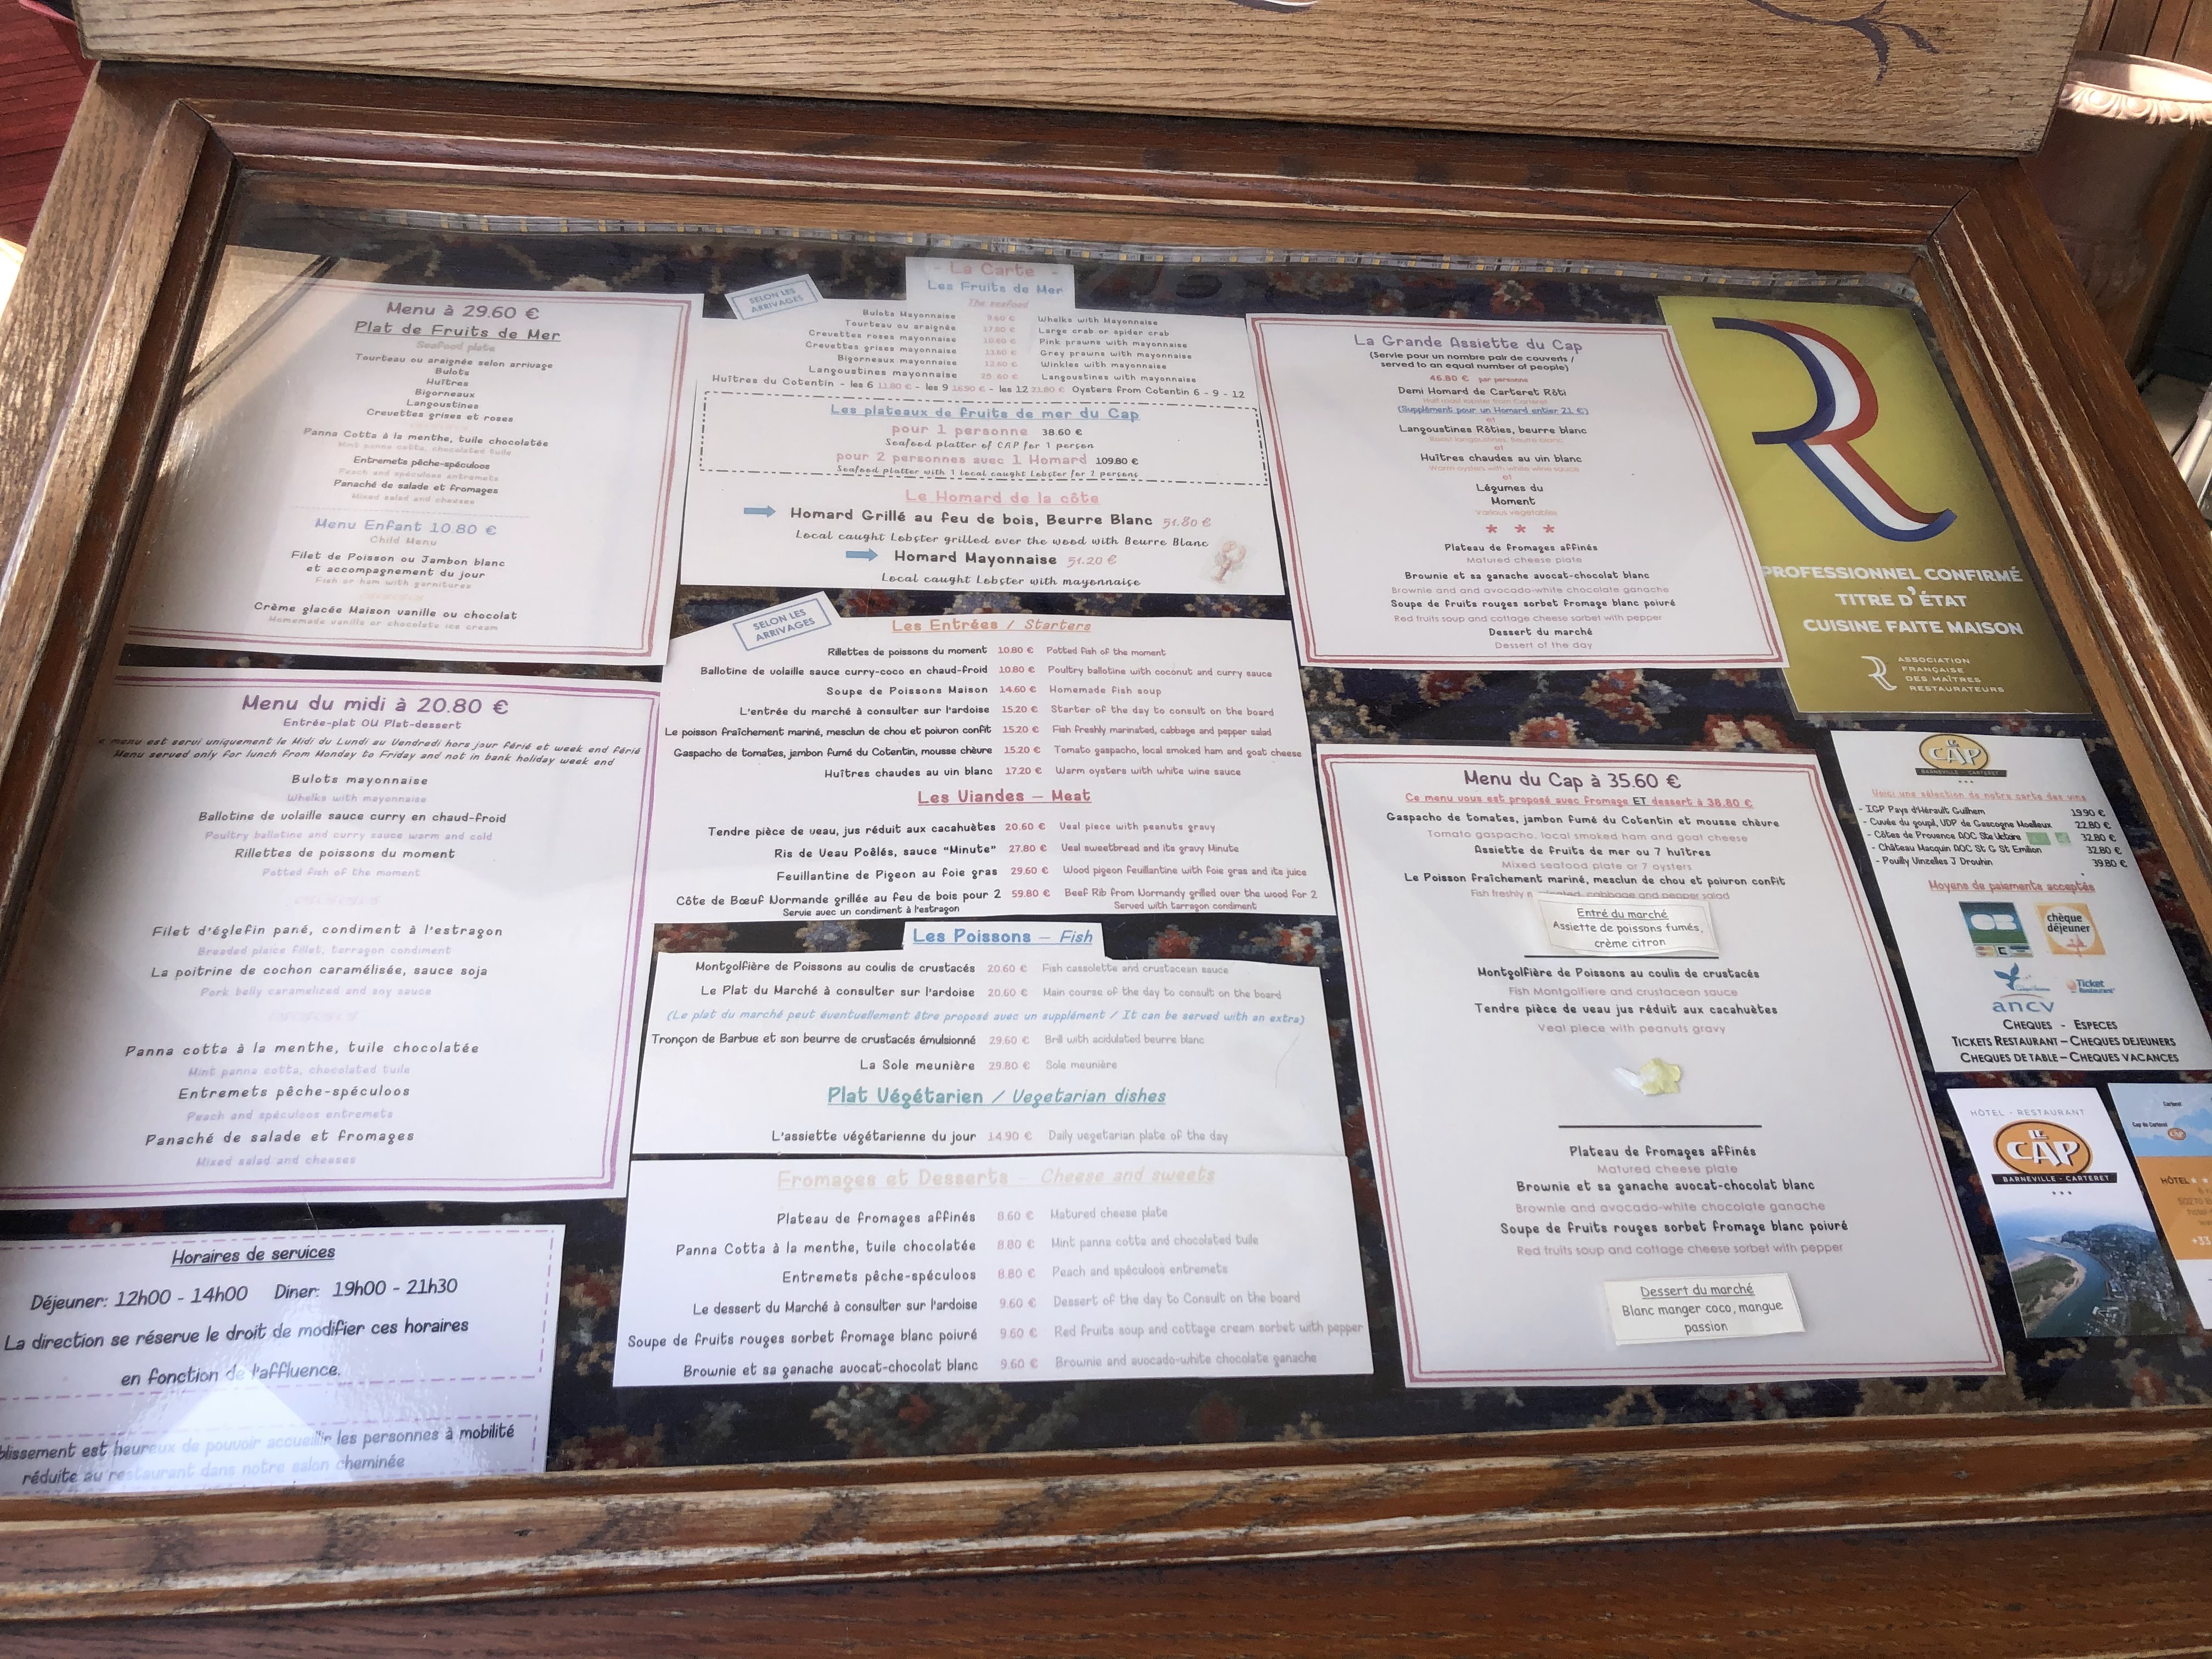 Menu à 29.60 €
Plat de Fruits de Mer
Seafood plate
Tourteau ou araignée selon arrivage
Bulots
Huîtres
Bigorneaux
Langoustines
Crevettes grises et roses
Panna Cotta à la menthe, tuile chocolatée
Mint panna cotta, chocolated tuile
Entremets pêche-spéculoos
Peach and spéculoos entremets
Panaché de salade et fromages
Mixed salad and cheeses
Menu Enfant 10.80 €
Child Menu
Filet de Poisson ou Jambon blanc
et accompagnement du jour
Fish or ham with garnitures
Crème glacée Maison vanille ou chocolat
Homemade vanilla or chocolate ice cream
Menu du midi à 20.80 €
Entrée-plat OU Plat-dessert
menu est servi uniquement le Midi du Lundi au Vendredi hors jour férié et week end férié
Menu served only for lunch from Monday to Friday and not in bank holiday week end
Bulots mayonnaise
Whelks with mayonnaise
Ballotine de volaille sauce curry en chaud-froid
Poultry ballotine and curry sauce warm and cold
Rillettes de poissons du moment
Potted fish of the moment
Filet d'églefin pané, condiment à l'estragon
Breaded plaice fillet, tarragon condiment
La poitrine de cochon caramélisée, sauce soja
Pork belly caramelized and soy sauce
Panna cotta à la menthe, tuile chocolatée
Mint panna cotta, chocolated tuile
Entremets pêche-spéculoos
Peach and spéculoos entremets
Panaché de salade et fromages
Mixed salad and cheeses
Horaires de services
Déjeuner: 12h00 - 14h00 Diner: 19h00 - 21h30
La direction se réserve le droit de modifier ces horaires
en fonction de l'affluence.
blissement est heureux de pouvoir accueillir les personnes à mobilité
réduite au restaurant dans notre salon cheminée
- La Carte -
Les Fruits de Mer
The seafood
SELON LES
ARRIVAGES
Bulots Mayonnaise 9.60 € Whelks with Mayonnaise
Tourteau ou araignée 17.80 € Large crab or spider crab
Crevettes roses mayonnaise Pink prawns with mayonnaise
Crevettes grises mayonnaise 13.80 € Grey prawns with mayonnaise
Bigorneaux mayonnaise 12.60 € Winkles with mayonnaise
Langoustines mayonnaise 25.60 € Langoustines with mayonnaise
Huîtres du Cotentin - les 6 11.80 € - les 9 16.90 € - les 12 21.80 € Oysters from Cotentin 6 - 9 - 12
Les plateaux de fruits de mer du Cap
pour 1 personne 38.60 €
Seafood platter of CAP for 1 person
pour 2 personnes avec 1 Homard 109.80 €
Seafood platter with 1 Local caught Lobster for 2 persons
Le Homard de la côte
Homard Grillé au feu de bois, Beurre Blanc 51.80 €
Local caught Lobster grilled over the wood with Beurre Blanc
Homard Mayonnaise 51.20 €
Local caught Lobster with mayonnaise
SELON LES
ARRIVAGES
Les Entrées / Starters
Rillettes de poissons du moment 10.80 € Potted fish of the moment
Ballotine de volaille sauce curry-coco en chaud-froid 10.80 € Poultry ballotine with coconut and curry sauce
Soupe de Poissons Maison 14.60 € Homemade fish soup
L'entrée du marché à consulter sur l'ardoise 15.20 € Starter of the day to consult on the board
Le poisson fraîchement mariné, mesclun de chou et poivron confit 15.20 € Fish freshly marinated, cabbage and pepper salad
Gaspacho de tomates, jambon fumé du Cotentin, mousse chèvre 15.20 € Tomato gaspacho, local smoked ham and goat cheese
Huîtres chaudes au vin blanc 17.20 € Warm oysters with white wine sauce
Les Viandes – Meat
Tendre pièce de veau, jus réduit aux cacahuètes 20.60 € Veal piece with peanuts gravy
Ris de Veau Poêlés, sauce "Minute" 27.80 € Veal sweetbread and its gravy Minute
Feuillantine de Pigeon au foie gras 29.60 € Wood pigeon feuillantine with foie gras and its juice
Côte de Bœuf Normande grillée au feu de bois pour 2 59.80 € Beef Rib from Normandy grilled over the wood for 2
Servie avec un condiment à l'estragon Served with tarragon condiment
Les Poissons – Fish
Montgolfière de Poissons au coulis de crustacés 20.60 € Fish cassolette and crustacean sauce
Le Plat du Marché à consulter sur l'ardoise 20.60 € Main course of the day to consult on the board
(Le plat du marché peut éventuellement être proposé avec un supplément / It can be served with an extra)
Tronçon de Barbue et son beurre de crustacés émulsionné 29.60 € Brill with acidulated beurre blanc
La Sole meunière 29.80 € Sole meunière
Plat Végétarien / Vegetarian dishes
L'assiette végétarienne du jour 14.90 € Daily vegetarian plate of the day
Fromages et Desserts – Cheese and sweets
Plateau de fromages affinés 8.60 € Matured cheese plate
Panna Cotta à la menthe, tuile chocolatée 8.80 € Mint panna cotta and chocolated tuile
Entremets pêche-spéculoos 8.80 € Peach and spéculoos entremets
Le dessert du Marché à consulter sur l'ardoise 9.60 € Dessert of the day to Consult on the board
Soupe de fruits rouges sorbet fromage blanc poivré 9.60 € Red fruits soup and cottage cream sorbet with pepper
Brownie et sa ganache avocat-chocolat blanc 9.60 € Brownie and avocado-white chocolate ganache
La Grande Assiette du Cap
(Servie pour un nombre pair de couverts /
served to an equal number of people)
46.80 € par personne
Demi Homard de Carteret Rôti
Half roast lobster from Carteret
(Supplément pour un Homard entier 21 €)
et
Langoustines Rôties, beurre blanc
Roast langoustines, beurre blanc
et
Huîtres chaudes au vin blanc
Warm oysters with white wine sauce
et
Légumes du
Moment
Various vegetables
* * *
Plateau de fromages affinés
Matured cheese plate
Brownie et sa ganache avocat-chocolat blanc
Brownie and and avocado-white chocolate ganache
Soupe de fruits rouges sorbet fromage blanc poivré
Red fruits soup and cottage cheese sorbet with pepper
Dessert du marché
Dessert of the day
Menu du Cap à 35.60 €
Ce menu vous est proposé avec fromage ET dessert à 38.80 €
Gaspacho de tomates, jambon fumé du Cotentin et mousse chèvre
Tomato gaspacho, local smoked ham and goat cheese
Assiette de fruits de mer ou 7 huîtres
Mixed seafood plate or 7 oysters
Le Poisson fraîchement mariné, mesclun de chou et poivron confit
Fish freshly cabbage and pepper salad
Entré du marché
Assiette de poissons fumés,
crème citron
Montgolfière de Poissons au coulis de crustacés
Fish Montgolfiere and crustacean sauce
Tendre pièce de veau jus réduit aux cacahuètes
Veal piece with peanuts gravy
Plateau de fromages affinés
Matured cheese plate
Brownie et sa ganache avocat-chocolat blanc
Brownie and avocado-white chocolate ganache
Soupe de fruits rouges sorbet fromage blanc poivré
Red fruits soup and cottage cheese sorbet with pepper
Dessert du marché
Blanc manger coco, mangue
passion
R
PROFESSIONNEL CONFIRMÉ
TITRE D'ÉTAT
CUISINE FAITE MAISON
ASSOCIATION
FRANÇAISE
DES MAÎTRES
RESTAURATEURS
LE
CAP
BARNEVILLE - CARTERET
Voici une sélection de notre carte des vins
- IGP Pays d'Hérault Guilhem 19.90 €
- Cuvée du goupil, VDP de Gascogne Moelleux 22.80 €
- Côtes de Provence AOC Ste Victoire 32.80 €
- Château Macquin AOC St G St Emilion 32.80 €
- Pouilly Vinzelles J Drouhin 39.80 €
Moyens de paiements acceptés
CB
chèque
déjeuner
ancv
Ticket
Restaurant
CHEQUES - ESPECES
TICKETS RESTAURANT – CHEQUES DEJEUNERS
CHEQUES DE TABLE – CHEQUES VACANCES
HÔTEL - RESTAURANT
LE
CAP
BARNEVILLE - CARTERET
Carteret
Cap de Carteret
HÔTEL
+33